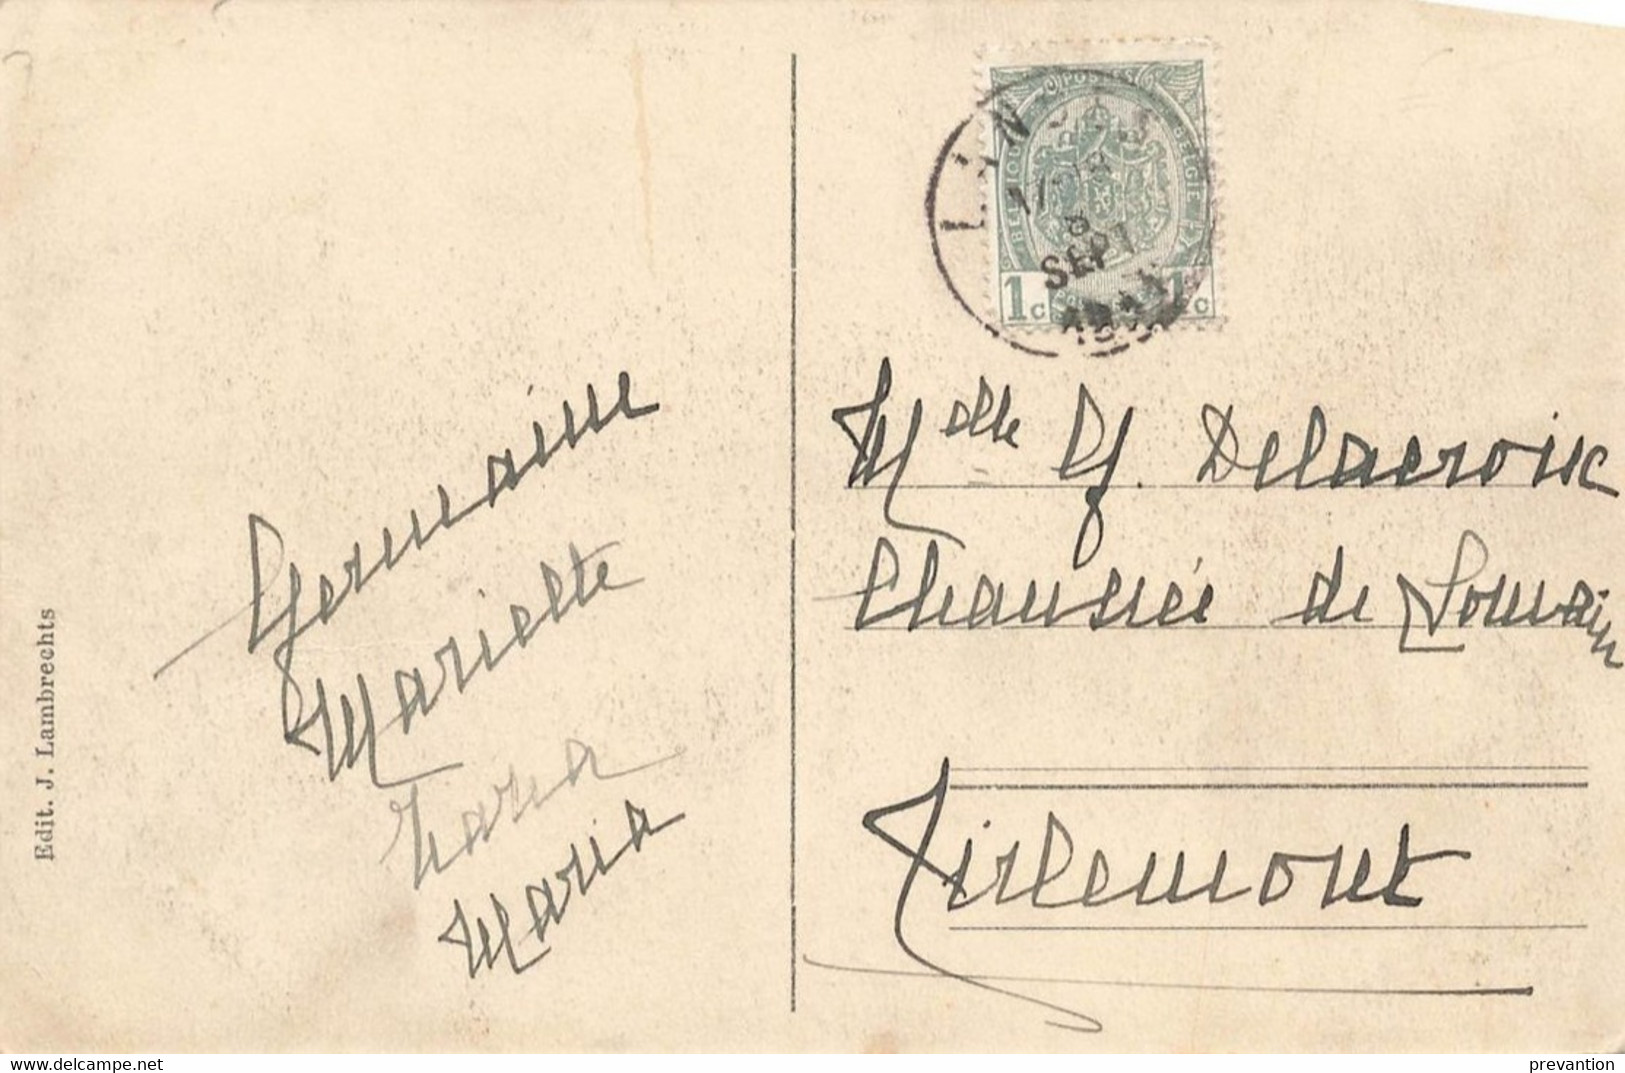 Edit. J. Lambrechts
Germaine
Mariette
Maria
POSTES
BELGIQUE
BELGIË
1c
1c
17-18
8
SEPT
Melle G. Delacroix
Chaussée de Louvain
Tirlemont
www.delcampe.net
prevantion